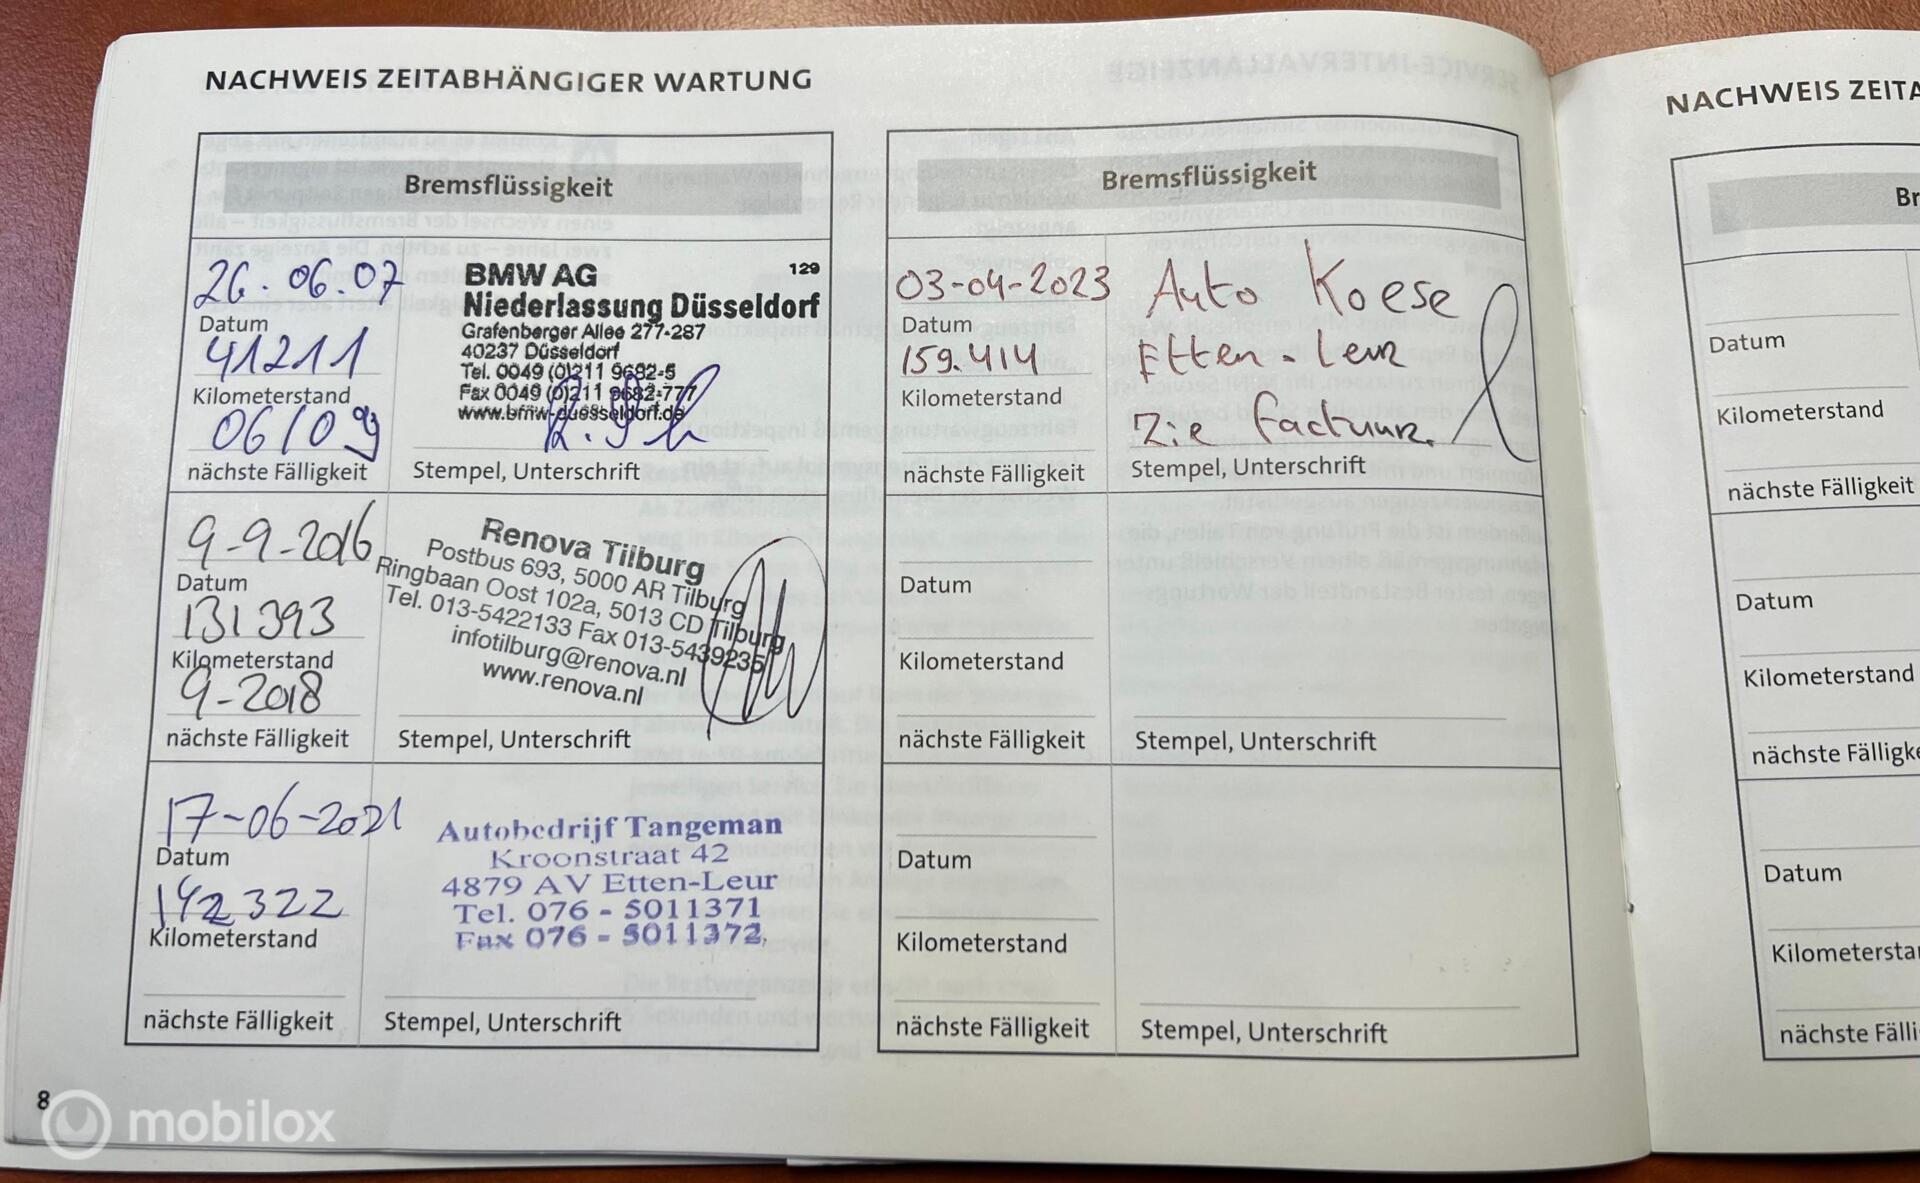 NACHWEIS ZEITABHÄNGIGER WARTUNG
Bremsflüssigkeit
26.06.07
Datum
41211
Kilometerstand
06/09
nächste Fälligkeit
BMW AG 129
Niederlassung Düsseldorf
Grafenberger Allee 277-287
40237 Düsseldorf
Tel. 0049 (0)211 9682-5
Fax 0049 (0)211 9682-777
www.bmw-duesseldorf.de
Stempel, Unterschrift
9-9-2016
Datum
131 393
Kilometerstand
9-2018
nächste Fälligkeit
Renova Tilburg
Postbus 693, 5000 AR Tilburg
Ringbaan Oost 102a, 5013 CD Tilburg
Tel. 013-5422133 Fax 013-5439235
infotilburg@renova.nl
www.renova.nl
Stempel, Unterschrift
17-06-2021
Datum
142 322
Kilometerstand
nächste Fälligkeit
Autobedrijf Tangeman
Kroonstraat 42
4879 AV Etten-Leur
Tel. 076 - 5011371
Fax 076 - 5011372
Stempel, Unterschrift
Bremsflüssigkeit
03-04-2023
Datum
159.414
Kilometerstand
nächste Fälligkeit
Auto Koese
Etten-Leur
Zie factuur.
Stempel, Unterschrift
Datum
Kilometerstand
nächste Fälligkeit
Stempel, Unterschrift
Datum
Kilometerstand
nächste Fälligkeit
Stempel, Unterschrift
8
mobilox
NACHWEIS ZEITA
Br
Datum
Kilometerstand
nächste Fälligkeit
Datum
Kilometerstand
nächste Fälligke
Datum
Kilometersta
nächste Fälli